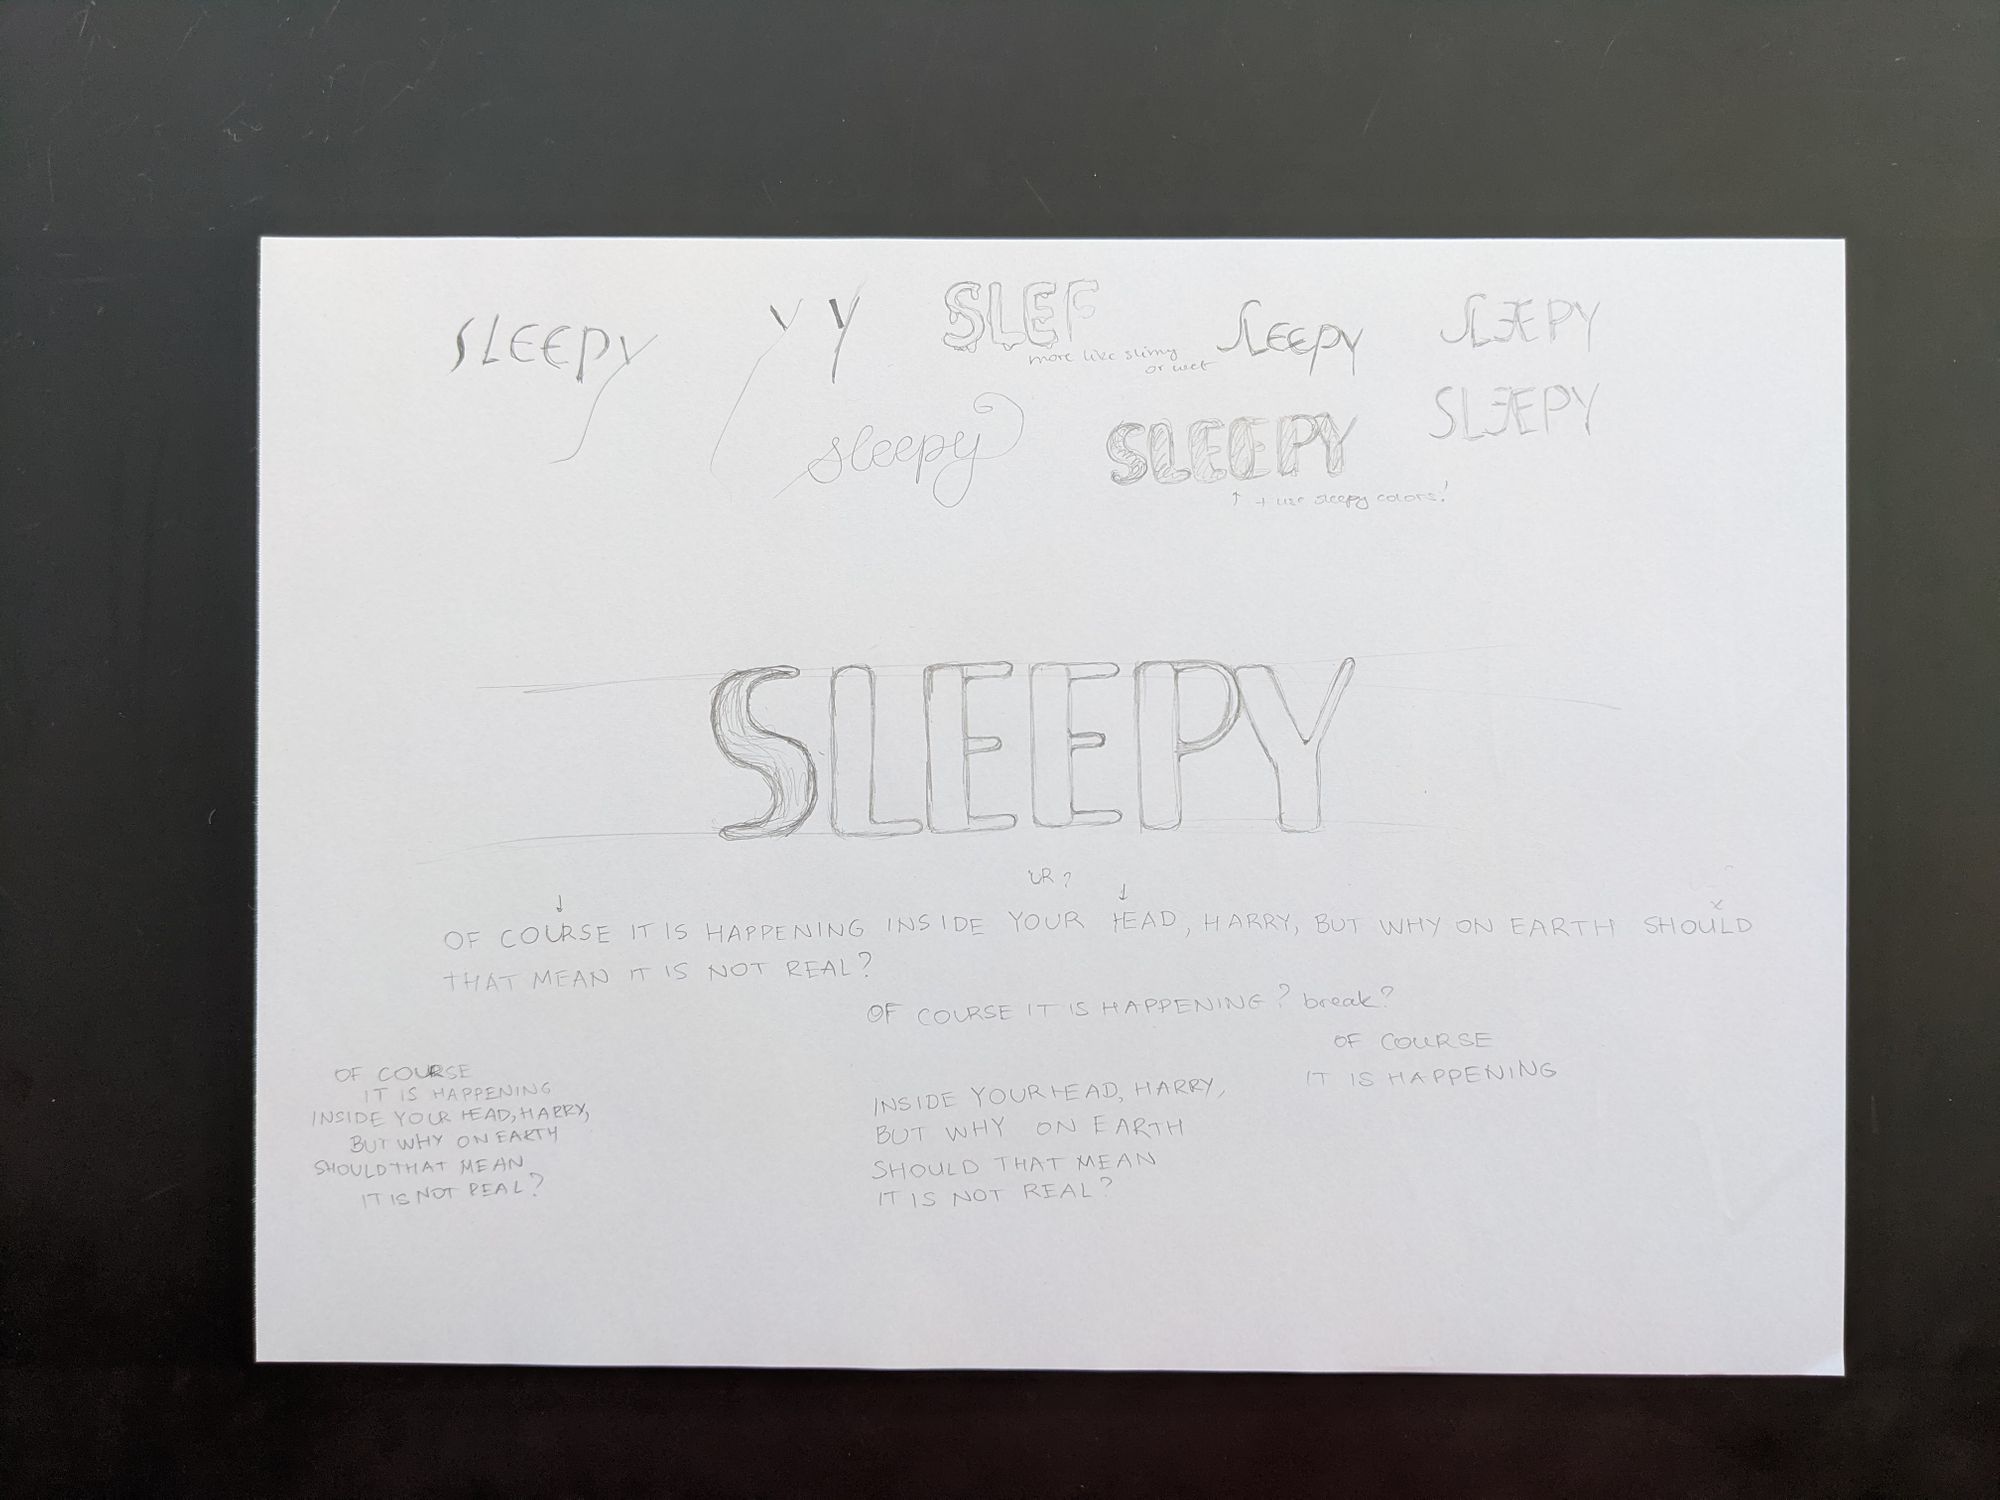 SLEEPY
Y Y
SLEF
more like slimy
or wet
SLEEPY
SLEEPY
sleepy
SLEEPY
↑ + use sleepy colors!
SLEEPY
SLEEPY
UR?
OF COURSE IT IS HAPPENING INSIDE YOUR HEAD, HARRY, BUT WHY ON EARTH SHOULD
THAT MEAN IT IS NOT REAL?
OF COURSE IT IS HAPPENING? break?
OF COURSE
IT IS HAPPENING
OF COURSE
IT IS HAPPENING
INSIDE YOUR HEAD, HARRY,
BUT WHY ON EARTH
SHOULD THAT MEAN
IT IS NOT REAL?
INSIDE YOUR HEAD, HARRY,
BUT WHY ON EARTH
SHOULD THAT MEAN
IT IS NOT REAL?